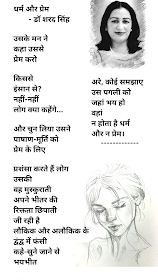 धर्म और प्रेम
- डॉ शरद सिंह
उसके मन ने
कहा उससे
प्रेम करो
किससे
इंसान से?
नहीं-नहीं
लोग क्या कहेंगे...
और चुन लिया उसने
पाषाण-मूर्ति को
प्रेम के लिए
प्रशंसा करते हैं लोग
उसकी
वह मुस्कुराती
अपने भीतर की
रिक्तता छिपाती
जी रही है
लौकिक और अलौकिक के
द्वंद्व में फंसी
कहे-सुने जाने से
भयभीत
अरे, कोई समझाए
उस पगली को
जहां भय हो
वहां
न होता है धर्म
और न प्रेम।
--------------